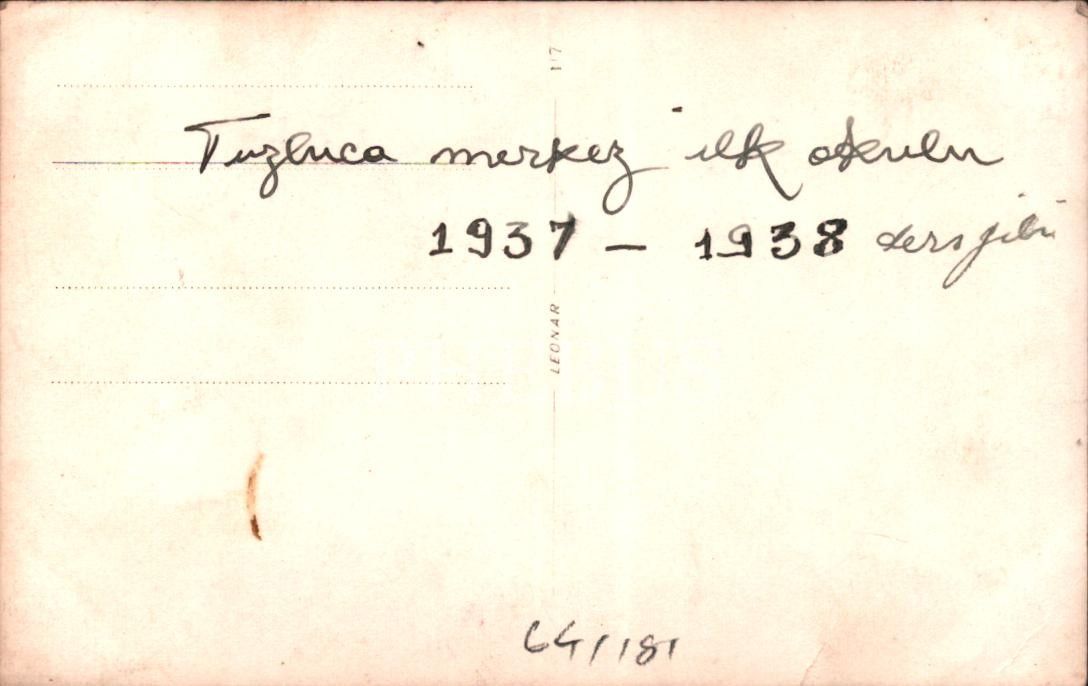 117
Tuzluca merkez ilk okulu
1937 – 1938 ders yılı
LEONAR
PHEBUS
64/181